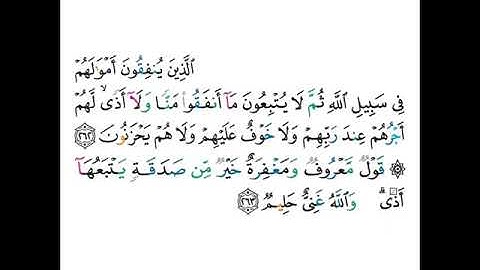 الَّذِينَ يُنفِقُونَ أَمْوَٰلَهُمْ
فِي سَبِيلِ اللَّهِ ثُمَّ لَا يُتْبِعُونَ مَآ أَنفَقُوا۟ مَنًّا وَلَآ أَذًى ۙ لَّهُمْ
أَجْرُهُمْ عِندَ رَبِّهِمْ وَلَا خَوْفٌ عَلَيْهِمْ وَلَا هُمْ يَحْزَنُونَ ٢٦٢
۞ قَوْلٌ مَّعْرُوفٌ وَمَغْفِرَةٌ خَيْرٌ مِّن صَدَقَةٍ يَتْبَعُهَآ
أَذًى ۗ وَاللَّهُ غَنِيٌّ حَلِيمٌ ٢٦٣